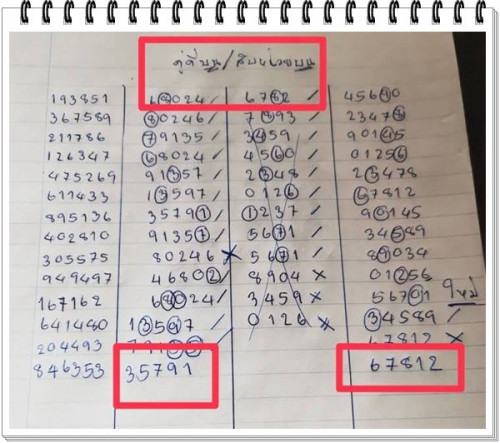 คู่คี่บน/สิบหน่วยบน
193851 68024/ 6782/ 45690
367589 80246/ 7893/ 23478
211786 79135/ 3459/ 90145
126347 68024/ 4560/ 01256
475269 91357/ 2348/ 23478
611433 13597/ 0126/ 67812
895136 35791/ 1237/ 90145
402810 91357/ 5671/ 34589
305575 80246 × 5671/ 89034
949497 46802/ 8904 × 01256
167162 68024/ 3459 × 56701 ใหม่
641480 13597/ 0126 × 34589/
204493 67812 ×
846353 35791 67812